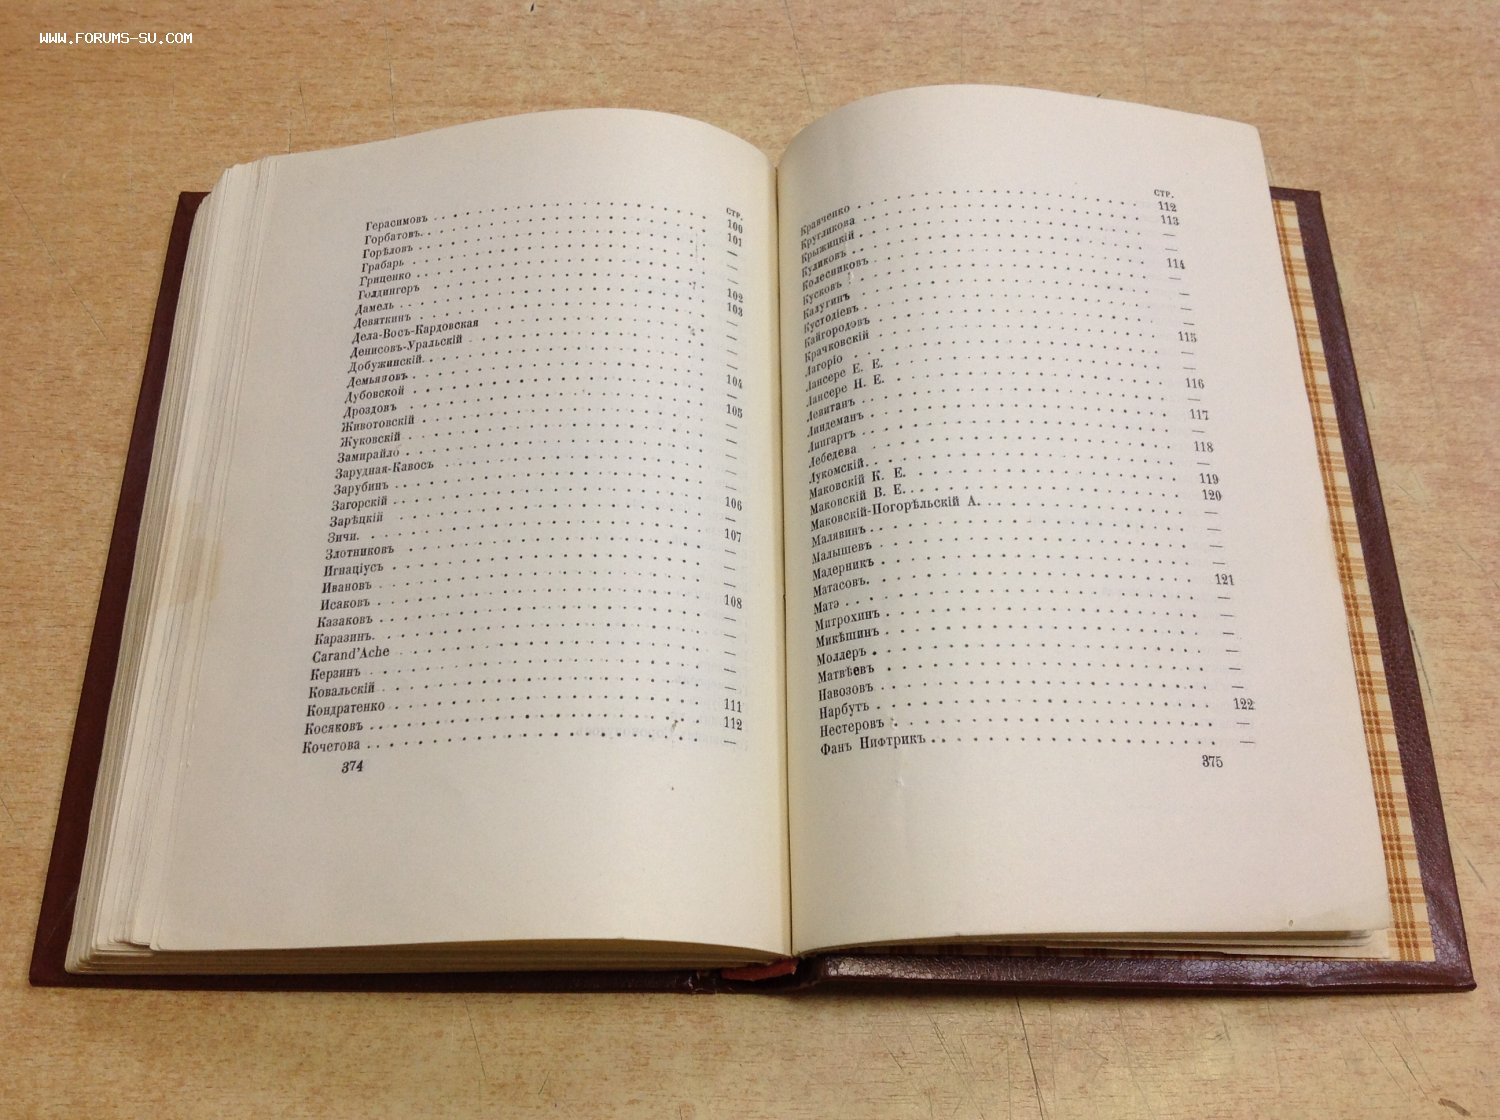 WWW.FORUMS-SU.COM
СТР.
Герасимовъ 100
Горбатовъ. 101
Горѣловъ —
Грабарь —
Гриценко —
Голдингеръ 102
Дамель 103
Девяткинъ —
Дела-Восъ-Кардовская —
Денисовъ-Уральскій —
Добужинскій. —
Демьяновъ 104
Дубовской —
Дроздовъ 105
Животовскій —
Жуковскій —
Замирайло —
Зарудная-Кавосъ —
Зарубинъ —
Загорскій 106
Зарѣцкій —
Зичи. 107
Злотниковъ —
Игнаціусъ —
Ивановъ —
Исаковъ 108
Казаковъ —
Каразинъ. —
Carand'Ache —
Керзинъ —
Ковальскій —
Кондратенко 111
Косяковъ 112
Кочетова —
374
СТР.
Кравченко 112
Кругликова 113
Крыжицкій —
Куликовъ —
Колесниковъ 114
Кусковъ —
Калугинъ —
Кустодіевъ —
Кайгородовъ —
Крачковскій 115
Лагоріо —
Лансере Е. Е. —
Лансере Н. Е. 116
Левитанъ —
Линдеманъ 117
Лингартъ —
Лебедева 118
Лукомскій. —
Маковскій К. Е. 119
Маковскій В. Е. 120
Маковскій-Погорѣльскій А. —
Малявинъ —
Малышевъ —
Мадерникъ —
Матасовъ. 121
Матэ —
Митрохинъ —
Микѣшинъ —
Моллеръ —
Матвѣевъ —
Навозовъ —
Нарбутъ 122
Нестеровъ —
Фанъ Нифтрикъ —
375